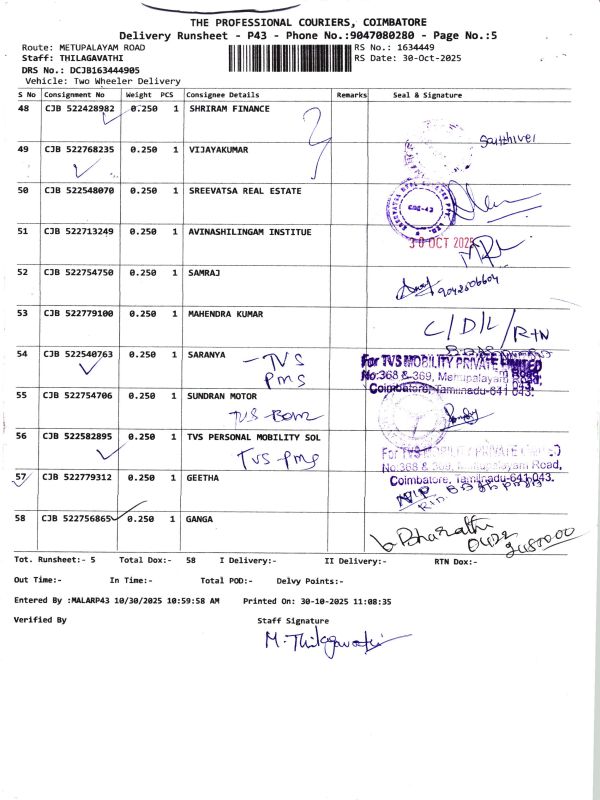 THE PROFESSIONAL COURIERS, COIMBATORE
Delivery Runsheet - P43 - Phone No.:9047080280 - Page No.:5
Route: METUPALAYAM ROAD
RS No.: 1634449
Staff: THILAGAVATHI
RS Date: 30-Oct-2025
DRS No.: DCJB163444905
Vehicle: Two Wheeler Delivery
S No Consignment No Weight PCS Consignee Details Remarks Seal & Signature
48 CJB 522428982 0.250 1 SHRIRAM FINANCE
49 CJB 522768235 0.250 1 VIJAYAKUMAR
50 CJB 522548070 0.250 1 SREEVATSA REAL ESTATE
51 CJB 522713249 0.250 1 AVINASHILINGAM INSTITUE
30 OCT 2025
52 CJB 522754750 0.250 1 SAMRAJ
9042806604
53 CJB 522779100 0.250 1 MAHENDRA KUMAR
C/D/L/RTN
54 CJB 522540763 0.250 1 SARANYA - TVS
PMS
For TVS MOBILITY PRIVATE LIMITED
No:368 & 369, Mettupalayam Road,
Coimbatore, Tamilnadu-641 043.
55 CJB 522754706 0.250 1 SUNDRAN MOTOR
56 CJB 522582895 0.250 1 TVS PERSONAL MOBILITY SOL
TVS-PMS
For TVS MOBILITY PRIVATE LIMITED
No:368 & 369, Mettupalayam Road,
Coimbatore, Tamilnadu-641-043.
57 CJB 522779312 0.250 1 GEETHA
58 CJB 522756865 0.250 1 GANGA
b Bharathi
0422
Tot. Runsheet:- 5 Total Dox:- 58 I Delivery:- II Delivery:- RTN Dox:-
Out Time:- In Time:- Total POD:- Delvy Points:-
Entered By :MALARP43 10/30/2025 10:59:58 AM Printed On: 30-10-2025 11:08:35
Verified By Staff Signature
M. Thilagavathi